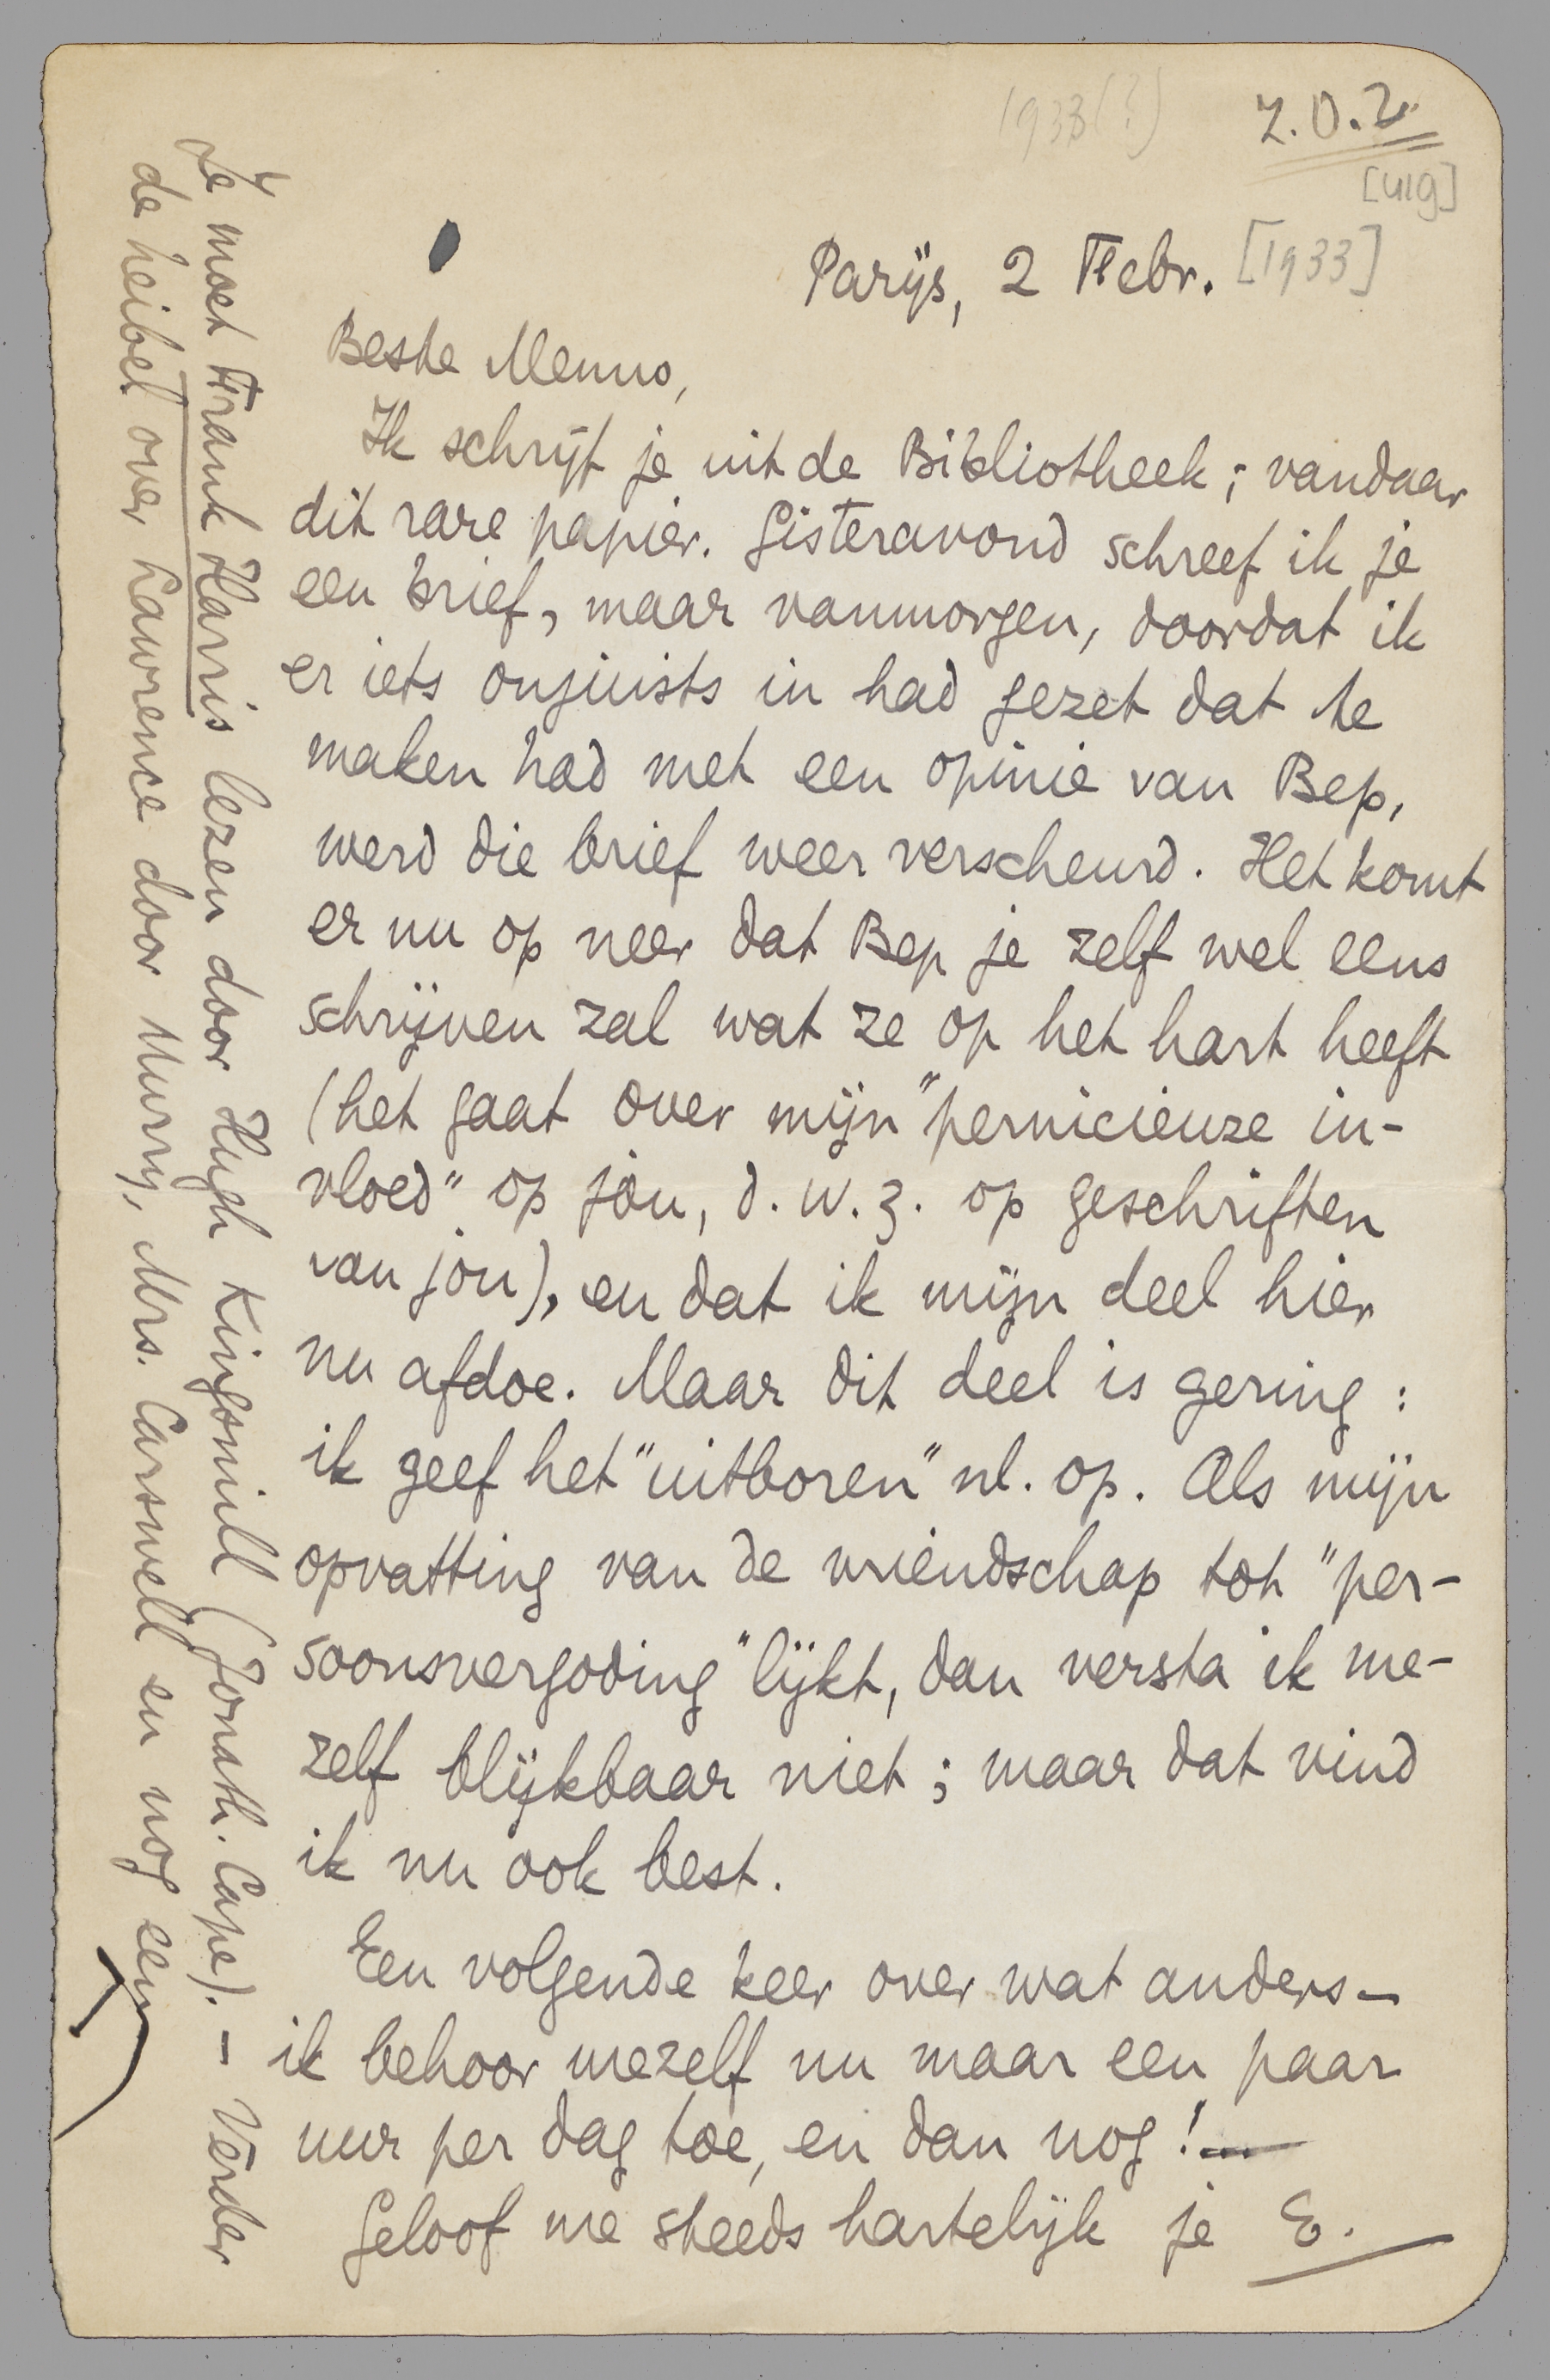 1933(?)
Z.O.Z.
[419]
Parijs, 2 Febr. [1933]
Beste Menno,
Ik schrijf je uit de Bibliotheek; vandaar
dit rare papier. Gisteravond schreef ik je
een brief, maar vanmorgen, doordat ik
er iets onjuists in had gezet dat te
maken had met een opinie van Bep,
werd die brief weer verscheurd. Het komt
er nu op neer dat Bep je zelf wel eens
schrijven zal wat ze op het hart heeft
(het gaat over mijn "pernicieuze in-
vloed" op jou, d.w.z. op geschriften
van jou), en dat ik mijn deel hier
nu afdoe. Maar dit deel is gering:
ik geef het "uitboren" nl. op. Als mijn
opvatting van de vriendschap tot "per-
soonsvergoding" lijkt, dan versta ik me-
zelf blijkbaar niet; maar dat vind
ik nu ook best.
Een volgende keer over wat anders –
ik behoor mezelf nu maar een paar
uur per dag toe, en dan nog! —
Geloof me steeds hartelijk je E.
Je moet Frank Harris lezen door Hugh Kingsmill (Jonath. Cape). – Verder
de heibel over Lawrence door Murry, Mrs. Carswell en nog een